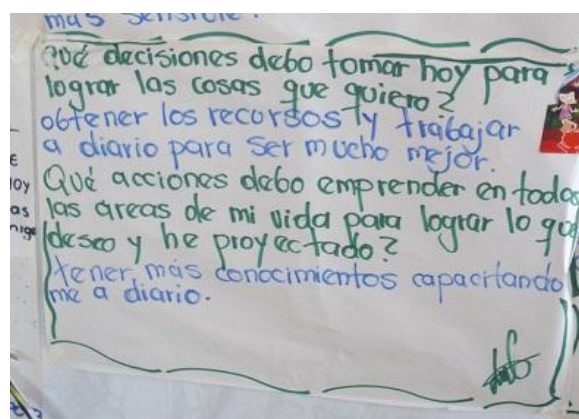 mas sensible.
Qué decisiones debo tomar hoy para
lograr las cosas que quiero?
obtener los recursos y trabajar
a diario para ser mucho mejor.
Qué acciones debo emprender en todas
las areas de mi vida para lograr lo que
deseo y he proyectado?
tener más conocimientos capacitando
me a diario.